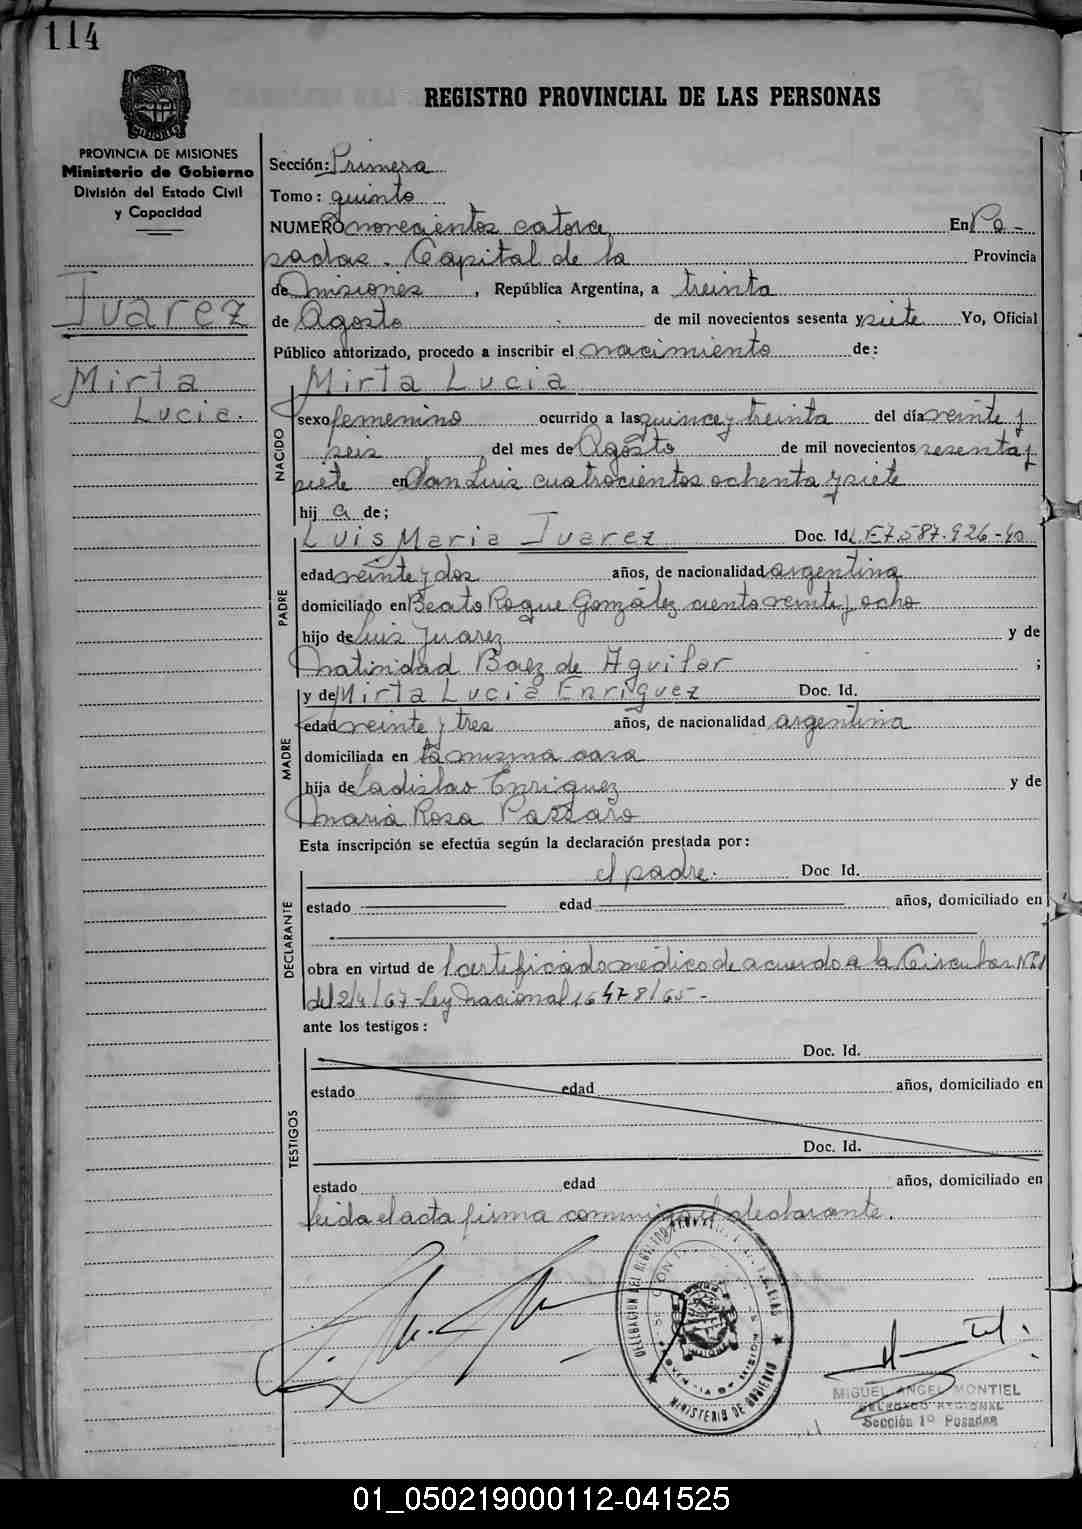 114
PROVINCIA DE MISIONES
Ministerio de Gobierno
División del Estado Civil
y Capacidad
Juarez
Mirta
Lucia.
REGISTRO PROVINCIAL DE LAS PERSONAS
Sección: Primera
Tomo: quinto
NUMERO novecientos catorce En Po-
sadas. Capital de la Provincia
de Misiones, República Argentina, a treinta
de Agosto de mil novecientos sesenta y siete Yo, Oficial
Público autorizado, procedo a inscribir el nacimiento de:
NACIDO
Mirta Lucia
sexo femenino ocurrido a las quince y treinta del día veinte y
seis del mes de Agosto de mil novecientos sesenta y
siete en San Luis cuatrocientos ochenta y siete
hij a de;
PADRE
Luis Maria Juarez Doc. Id. L.E 7.587.926-
edad veinte y dos años, de nacionalidad argentina
domiciliado en Beato Roque González ciento veinte y ocho
hijo de Luis Juarez y de
Natividad Baez de Aguilar ;
MADRE
y de Mirta Lucia Enriquez Doc. Id.
edad veinte y tres años, de nacionalidad argentina
domiciliada en la misma casa
hija de Ladislao Enriquez y de
Maria Rosa Passaro
Esta inscripción se efectúa según la declaración prestada por:
DECLARANTE
el padre. Doc Id.
estado edad años, domiciliado en
obra en virtud de certificado médico de acuerdo a la Circular
del 2/4/67-Ley Nacional 16478/65-
ante los testigos:
TESTIGOS
Doc. Id.
estado edad años, domiciliado en
Doc. Id.
estado edad años, domiciliado en
Leida el acta firma conmigo el declarante.
DELEGACION DEL REGISTRO
PROVINCIA DE MISIONES
MINISTERIO DE GOBIERNO
MIGUEL ANGEL MONTIEL
DELEGADO REGIONAL
Sección 1º Posadas
01_050219000112-041525